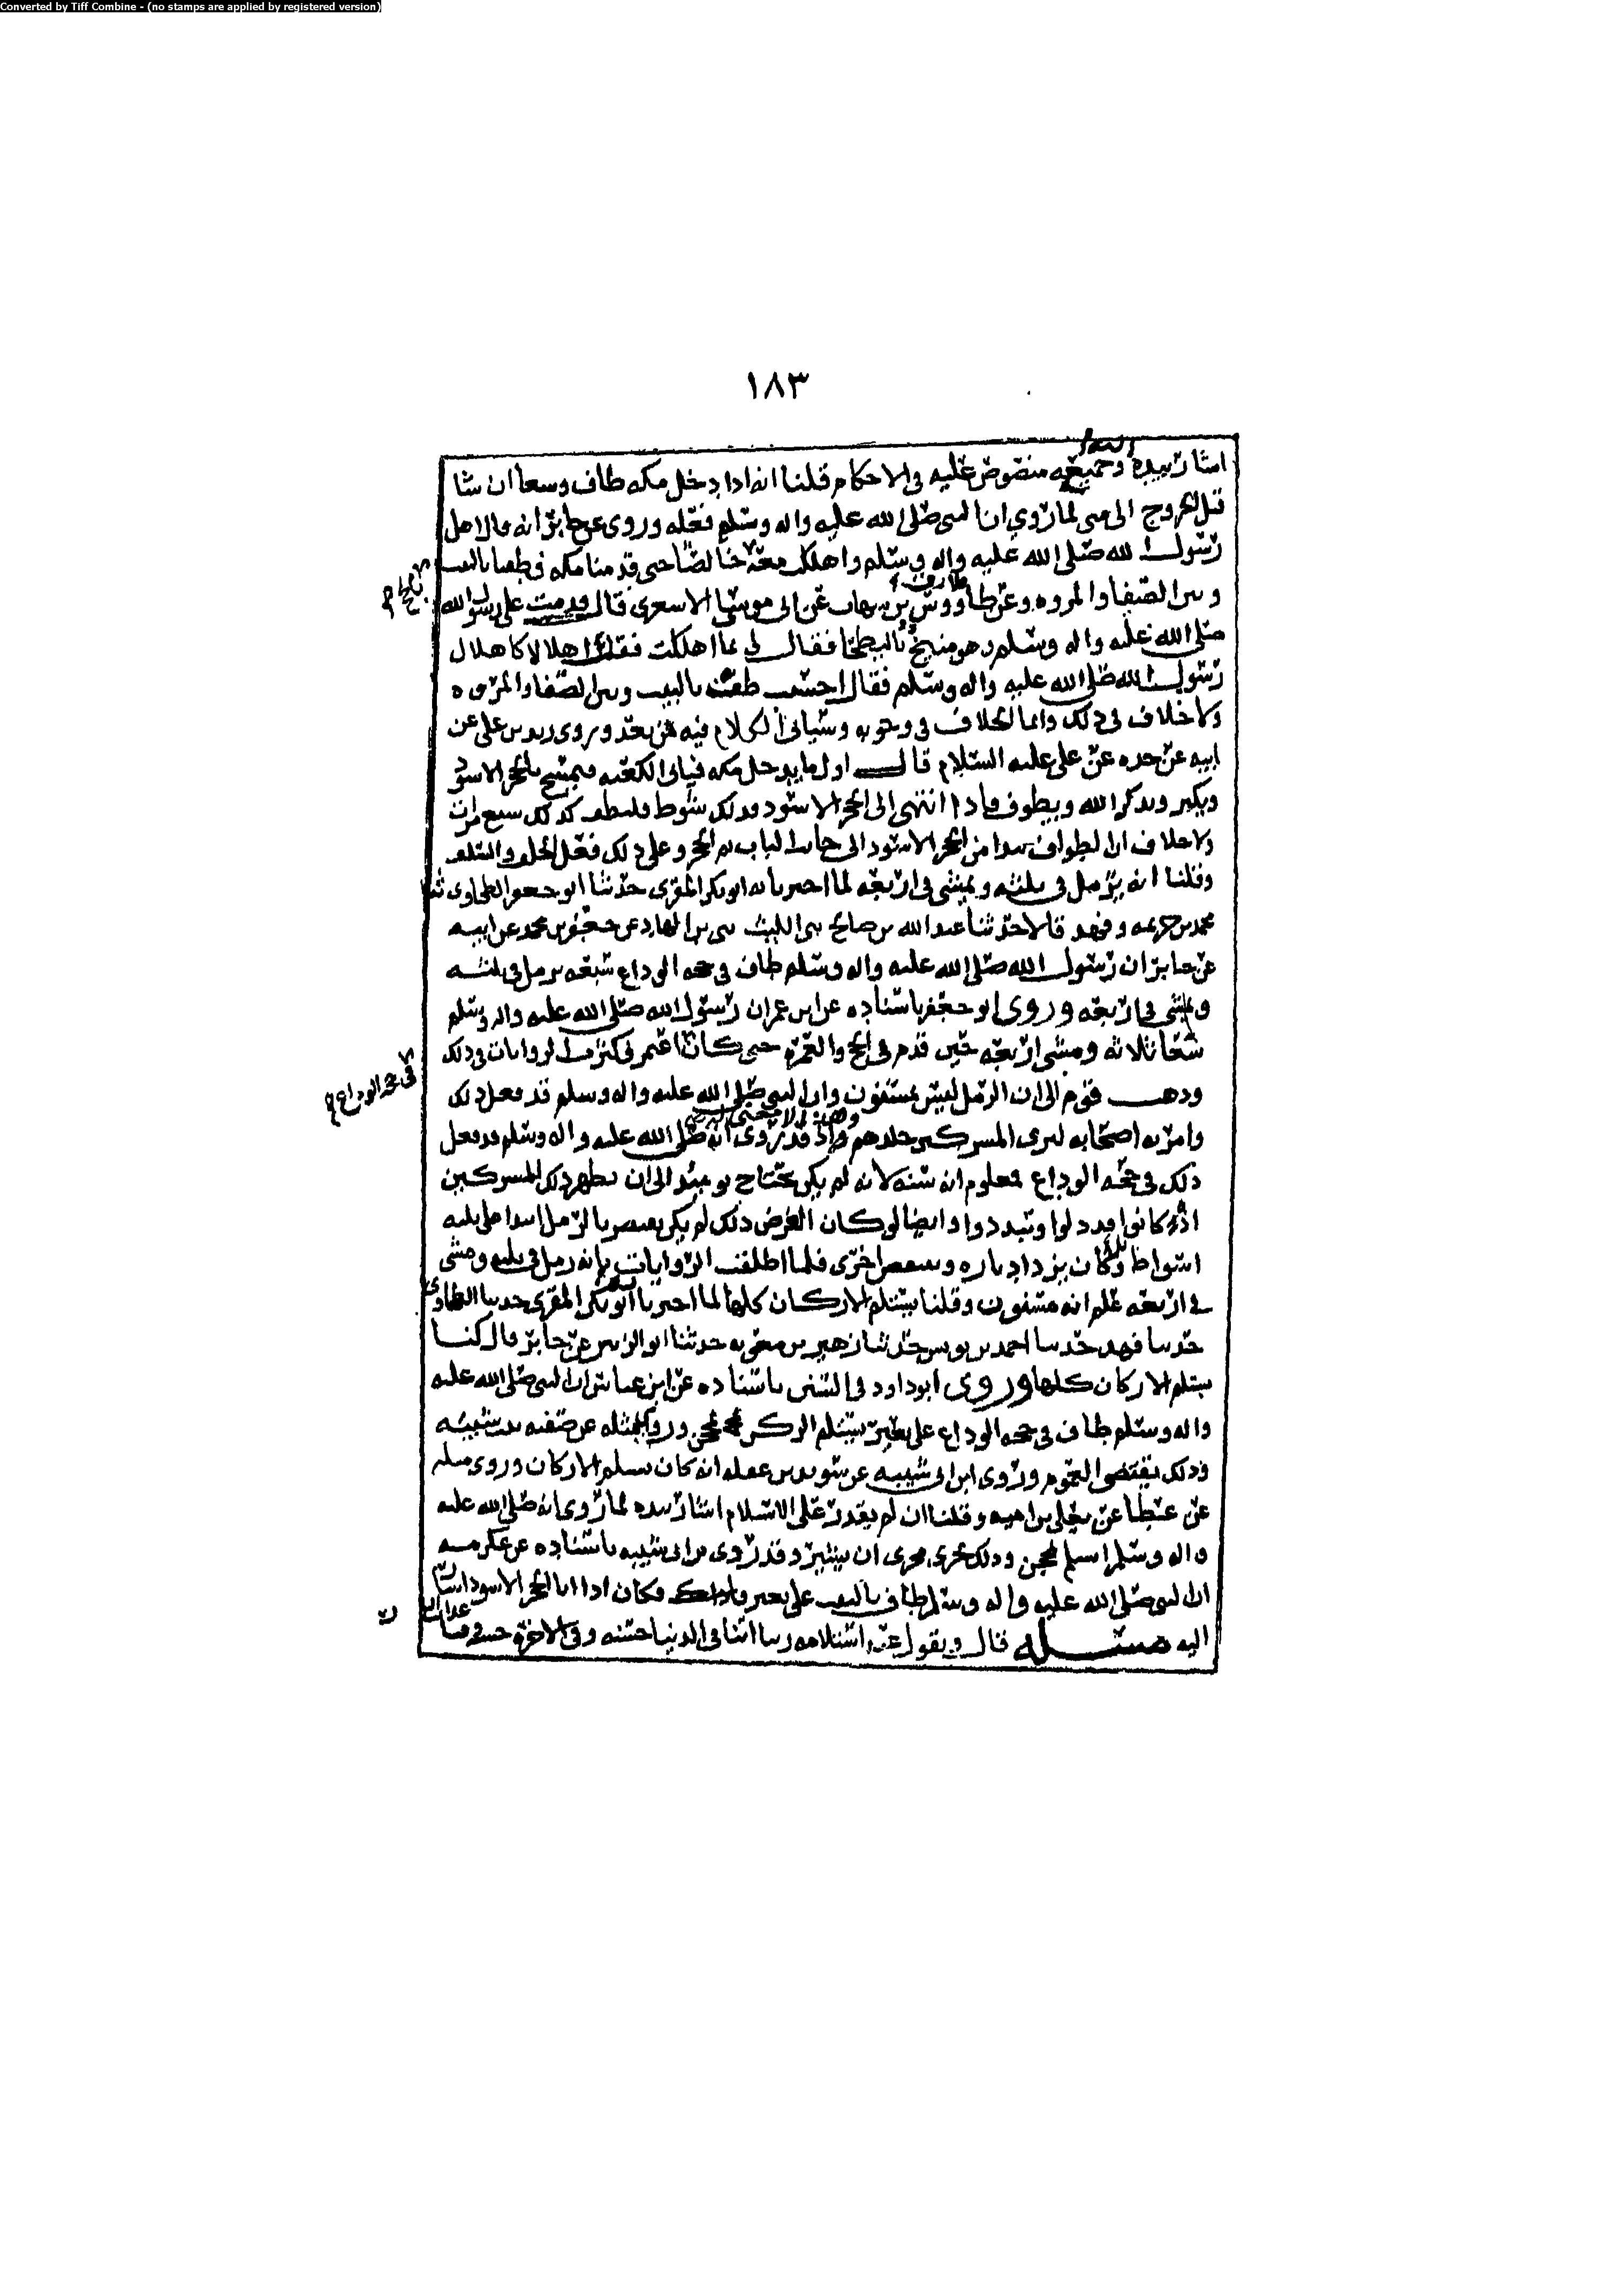 Converted by Tiff Combine - (no stamps are applied by registered version)
١٨٣
اشار بيده وجميعه منصوص عليه في الاحكام قلنا انه اذا دخل مكه طاف وسعا ان شا
قبل الخروج الى منى لما روي ان النبي صلى الله عليه واله وسلم فعله وروى عن جابر انه قال اهل
رسول الله صلى الله عليه واله وسلم واهللنا معه خالصا حتى قدمنا مكه فطفنا بالبيت
وبين الصفا والمروه وعن طارق بن شهاب عن ابي موسى الاشعري قال قدمت على رسول الله
بالحج
صلى الله عليه واله وسلم وهو منيخ بالبطحا فقال لي بما اهللت فقلت اهلالا كاهلال
رسول الله صلى الله عليه واله وسلم فقال احسنت طف بالبيت وبين الصفا والمروه
ولا خلاف في ذلك وانما الخلاف في وجوبه وسياتي الكلام فيه من بعد وروى زيد بن علي عن
ابيه عن جده عن علي عليه السلام قال اول ما يدخل مكه فياتي الكعبه فيمسح بالحجر الاسود
ويكبر ويذكر الله ويطوف فاذا انتهى الى الحجر الاسود فذلك شوط فليطف كذلك سبع مرات
ولا خلاف ان الطواف يبدا من الحجر الاسود الى جانب الباب ثم الحجر وعلى ذلك فعل الخلف والسلف
وقلنا انه يرمل في ثلثه ويمشي في اربعه لما اخبرنا به ابو بكر المقري حدثنا ابو جعفر الطحاوي ثنا
محمد بن خزيمه وفهد قالا حدثنا عبد الله بن صالح ثنى الليث ثنى بن الهاد عن جعفر بن محمد عن ابيه
عن جابر ان رسول الله صلى الله عليه واله وسلم طاف في حجه الوداع سبعه يرمل في ثلثه
ويمشي في اربعه وروى ابو جعفر باسناده عن ابن عمر ان رسول الله صلى الله عليه واله وسلم
سعا ثلاثه ومشى اربعه حين قدم في الحج والعمره حتى كان اعتمر في كثير من الروايات في ذلك
في حجه الوداع
وذهب قوم الى ان الرمل ليس بمسنون وان النبي صلى الله عليه واله وسلم قد فعل ذلك
وامر به اصحابه ليرى المشركين جلدهم واذ قد روى انه صلى الله عليه واله وسلم قد فعل
ذلك في حجه الوداع فمعلوم انه سنه لانه لم يكن يحتاج يومئذ الى ان يظهر ذلك للمشركين
اذ كانوا قد ذلوا وتبددوا وايضا لو كان الغرض ذلك لم يكن يقتصر بالرمل ابدا على ثلثه
اشواط ولكان يزداد تاره وينقص اخرى فلما اطلقت الروايات بانه رمل في ثلثه ومشى
في اربعه علم انه مسنون وقلنا يستلم الاركان كلها لما اخبرنا ابو بكر المقري حدثنا الطحاوي
حدثنا فهد حدثنا احمد بن يونس حدثنا زهير بن معويه حدثنا ابو الزبير عن جابر قال كنا
نستلم الاركان كلها وروى ابو داود في السنن باسناده عن ابن عباس ان النبي صلى الله عليه
واله وسلم طاف في حجه الوداع على بعير يستلم الركن بمحجن وروى مثله عن صفيه بنت شيبه
وذلك يقتضي العموم وروى ابن ابي شيبه عن سويد بن غفله انه كان يستلم الاركان وروى مثله
عن عطا عن يعلى بن اميه وقلنا ان لم يقدر على الاستلام اشار بيده لما روى انه صلى الله عليه
واله وسلم استلم بمحجن وذلك يجري مجرى ان يشير وقد روى بن ابي شيبه باسناده عن عكرمه
ان النبي صلى الله عليه واله وسلم طاف بالبيت على بعير وكان اذا اتى الحجر الاسود اشار
اليه مسئله قال ويقول عند استلامه ربنا اتنا في الدنيا حسنه وفي الاخره حسنه وقنا عذاب النار